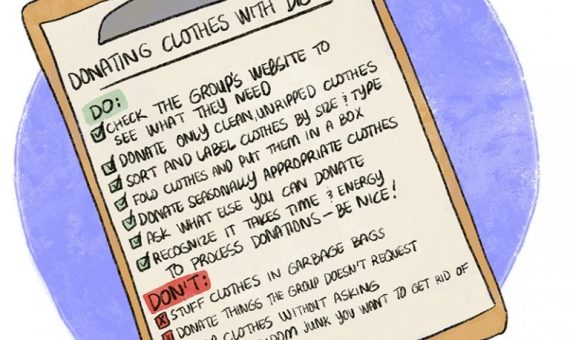 DONATING CLOTHES WITH
DO:
CHECK THE GROUP'S WEBSITE TO
SEE WHAT THEY NEED
DONATE ONLY CLEAN, UNRIPPED CLOTHES
SORT AND LABEL CLOTHES BY SIZE & TYPE
FOLD CLOTHES AND PUT THEM IN A BOX
DONATE SEASONALLY APPROPRIATE CLOTHES
ASK WHAT ELSE YOU CAN DONATE
RECOGNIZE IT TAKES TIME & ENERGY
TO PROCESS DONATIONS – BE NICE!
DON'T:
STUFF CLOTHES IN GARBAGE BAGS
DONATE THINGS THE GROUP DOESN'T REQUEST
CLOTHES WITHOUT ASKING
JUNK YOU WANT TO GET RID OF